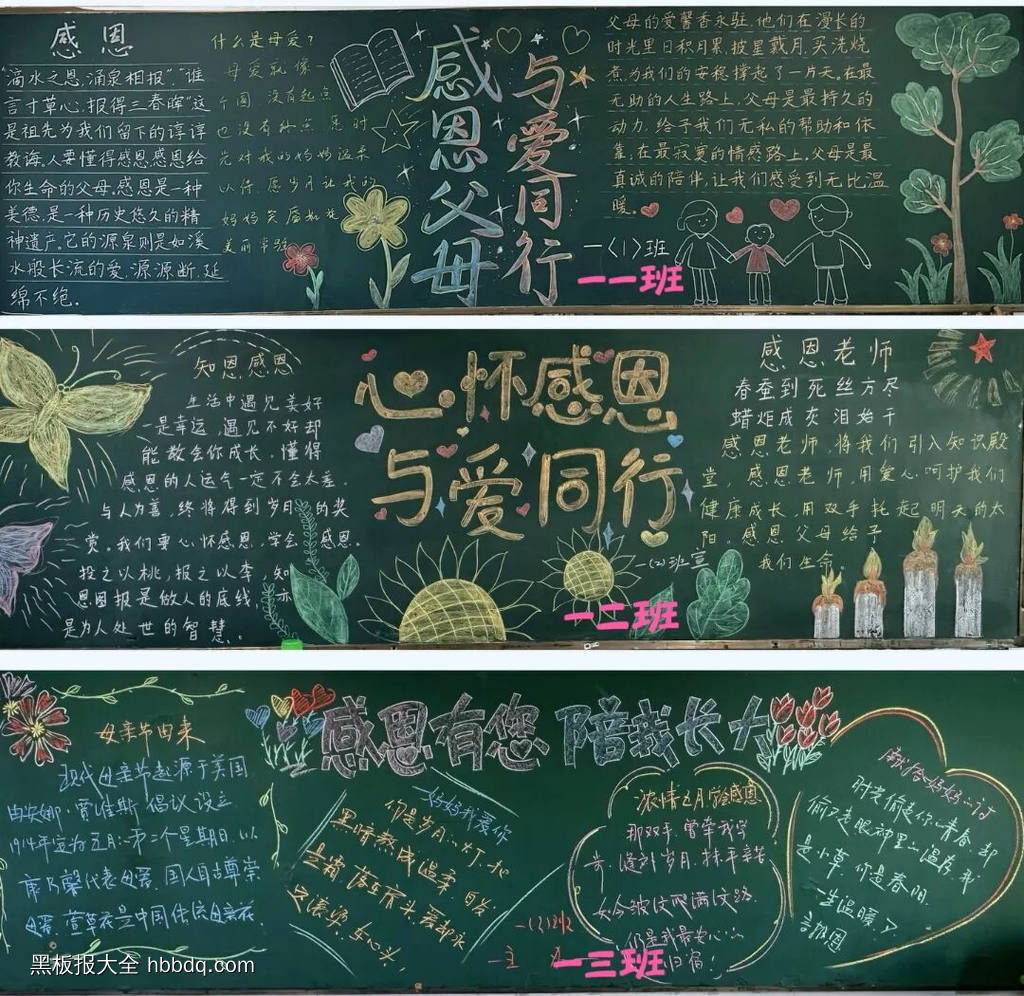 感恩
"滴水之恩,涌泉相报""谁
言寸草心,报得三春晖"这
是祖先为我们留下的谆谆
教诲,人要懂得感恩,感恩给
你生命的父母,感恩是一种
美德,是一种历史悠久的精
神遗产,它的源泉则是如溪
水般长流的爱,源源断,延
绵不绝。
什么是母爱?
母爱就像一
个圆,没有起点
也没有终点,愿时
光对我的妈妈温柔
以待,愿岁月让我的
妈妈笑唇如
美丽常驻
感恩父母
与爱同行
父母的爱馨香永驻,他们在漫长的
时光里日积月累,披星戴月,买洗烧
煮,为我们的安稳撑起了一片天。在最
无助的人生路上,父母是最持久的
动力,给予我们无私的帮助和依
靠,在最寂寞的情感路上,父母是最
真诚的陪伴,让我们感受到无比温
暖。
一(1)班
一一班
知恩感恩
生活中遇见美好
是幸运,遇见不好却
能教会你成长,懂得
感恩的人运气一定不会太差。
与人为善,终将得到岁月的奖
赏。我们要心怀感恩,学会感恩。
投之以桃,报之以李,知
恩图报是做人的底线,亦
是为人处世的智慧。
心怀感恩
与爱同行
一(2)班宣
一二班
感恩老师
春蚕到死丝方尽
蜡炬成灰泪始干
感恩老师,将我们引入知识殿
堂,感恩老师,用爱心呵护我们
健康成长,用双手托起明天的太
阳。感恩父母给予
我们生命。
感恩有您 陪我长大
母亲节由来
现代母亲节起源于美国
由安娜·贾维斯倡议设立
1914年定为五月第二个星期日,以
康乃馨代表母爱,国人自古尊崇
母爱,萱草花是中国传统母亲花
妈妈我爱你
你是岁月的灯,把
黑暗熬成温柔,白发
是霜,落在肩头,爱却永
浓情五月 学会感恩
那双手,曾牵我学
步,遮外岁月,抹平辛苦
如今皱纹爬满纹路,
仍是我最安心的
归宿!
一(3)班
一三班
写给妈妈的诗
时光偷走你的青春,却
偷不走眼神里的温存,我
是小草,你是春阳,
一生温暖了
黑板报大全 hbbdq.com